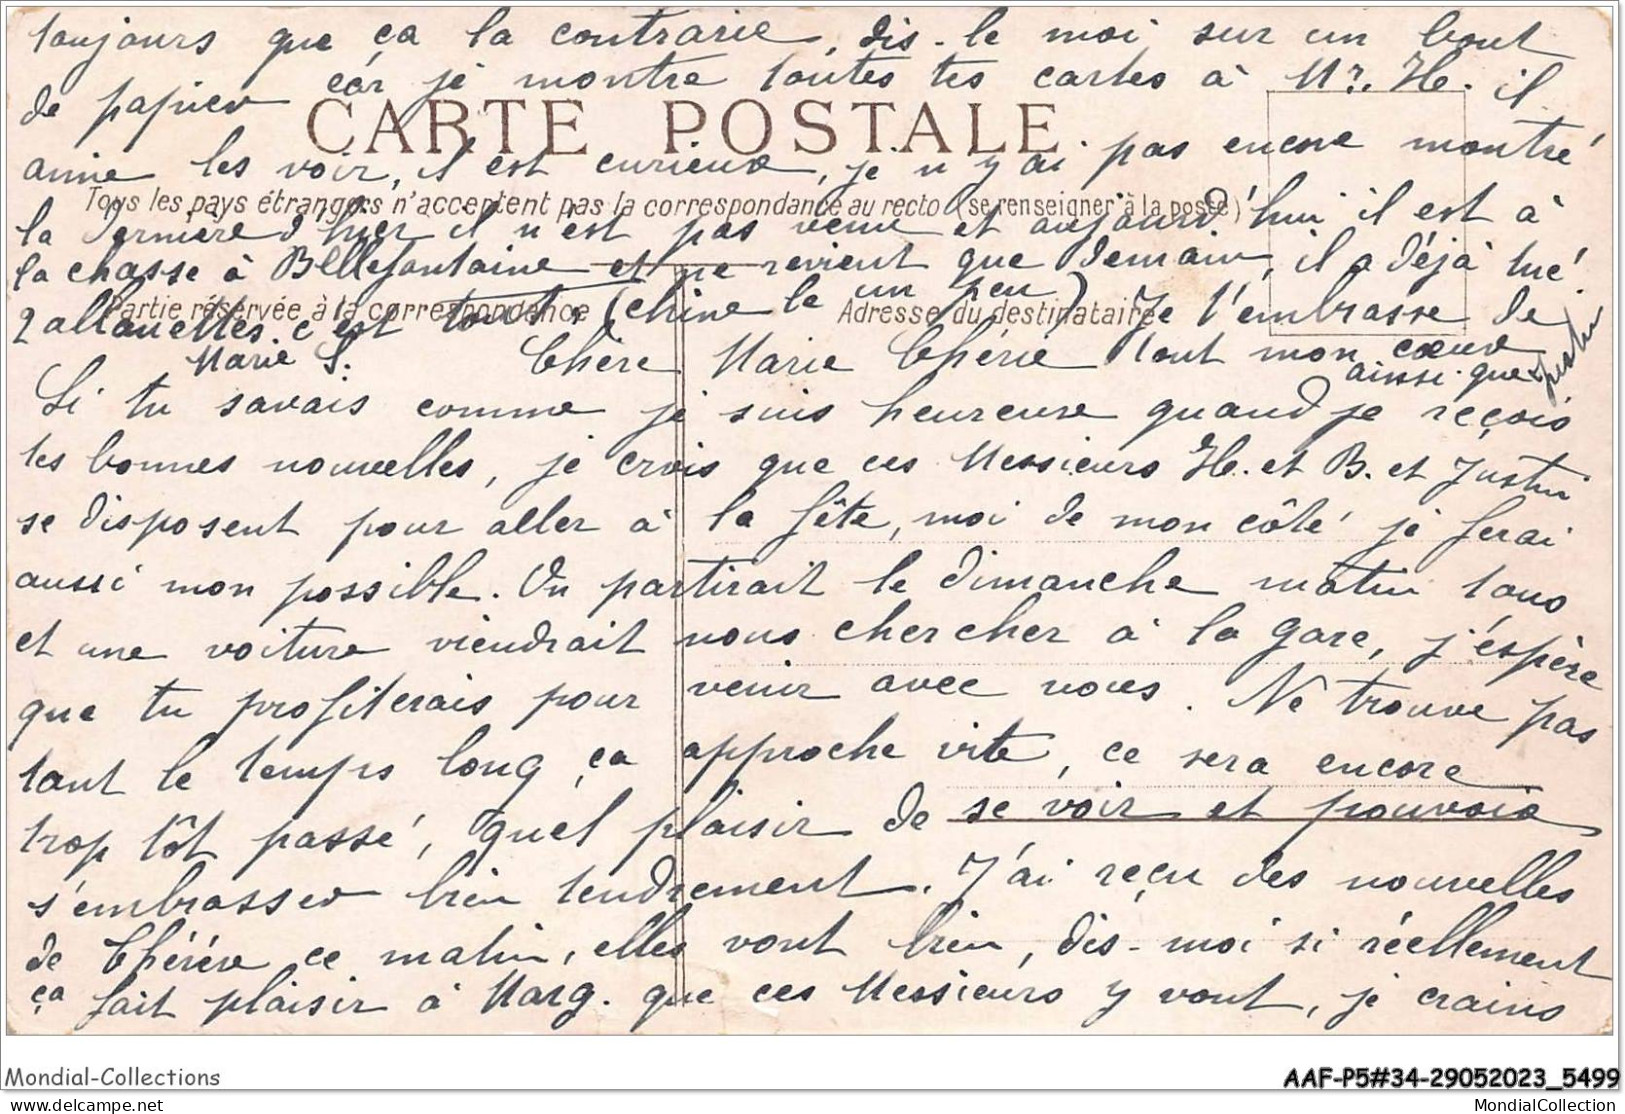 toujours que ça la contrarie, dis-le moi sur un bout
de papier car je montre toutes tes cartes à Mr. H. il
CARTE POSTALE
aime les voir, il est curieux, je n'y ai pas encore montré
Tous les pays étrangers n'acceptent pas la correspondance au recto (se renseigner à la poste)
la dernière d'hier il n'est pas venu et aujourd'hui il est à
la chasse à Bellefontaine et ne revient que demain, il a déjà tué
Partie réservée à la correspondance
Adresse du destinataire
2 allouettes c'est tout, (chine le un peu) Je t'embrasse de
Marie S. Chère Marie Chérie tout mon cœur
ainsi que Justin
Si tu savais comme je suis heureuse quand je reçois
tes bonnes nouvelles, je crois que ces Messieurs H. et B. et Justin
se disposent pour aller à la fête, moi de mon côté je ferai
aussi mon possible. On partirait le dimanche matin tous
et une voiture viendrait nous chercher à la gare, j'éspère
que tu profiterais pour venir avec nous. Ne trouve pas
tant le temps long ça approche vite, ce sera encore
trop tôt passé, quel plaisir de se voir et pouvoir
s'embrasser bien tendrement. J'ai reçu des nouvelles
de Chérére ce matin, elles vont bien, dis-moi si réellement
ça fait plaisir à Marg. que ces Messieurs y vont, je crains
Mondial-Collections
AAF-P5#34-29052023_5499
mondialcollection.com
MondialCollection